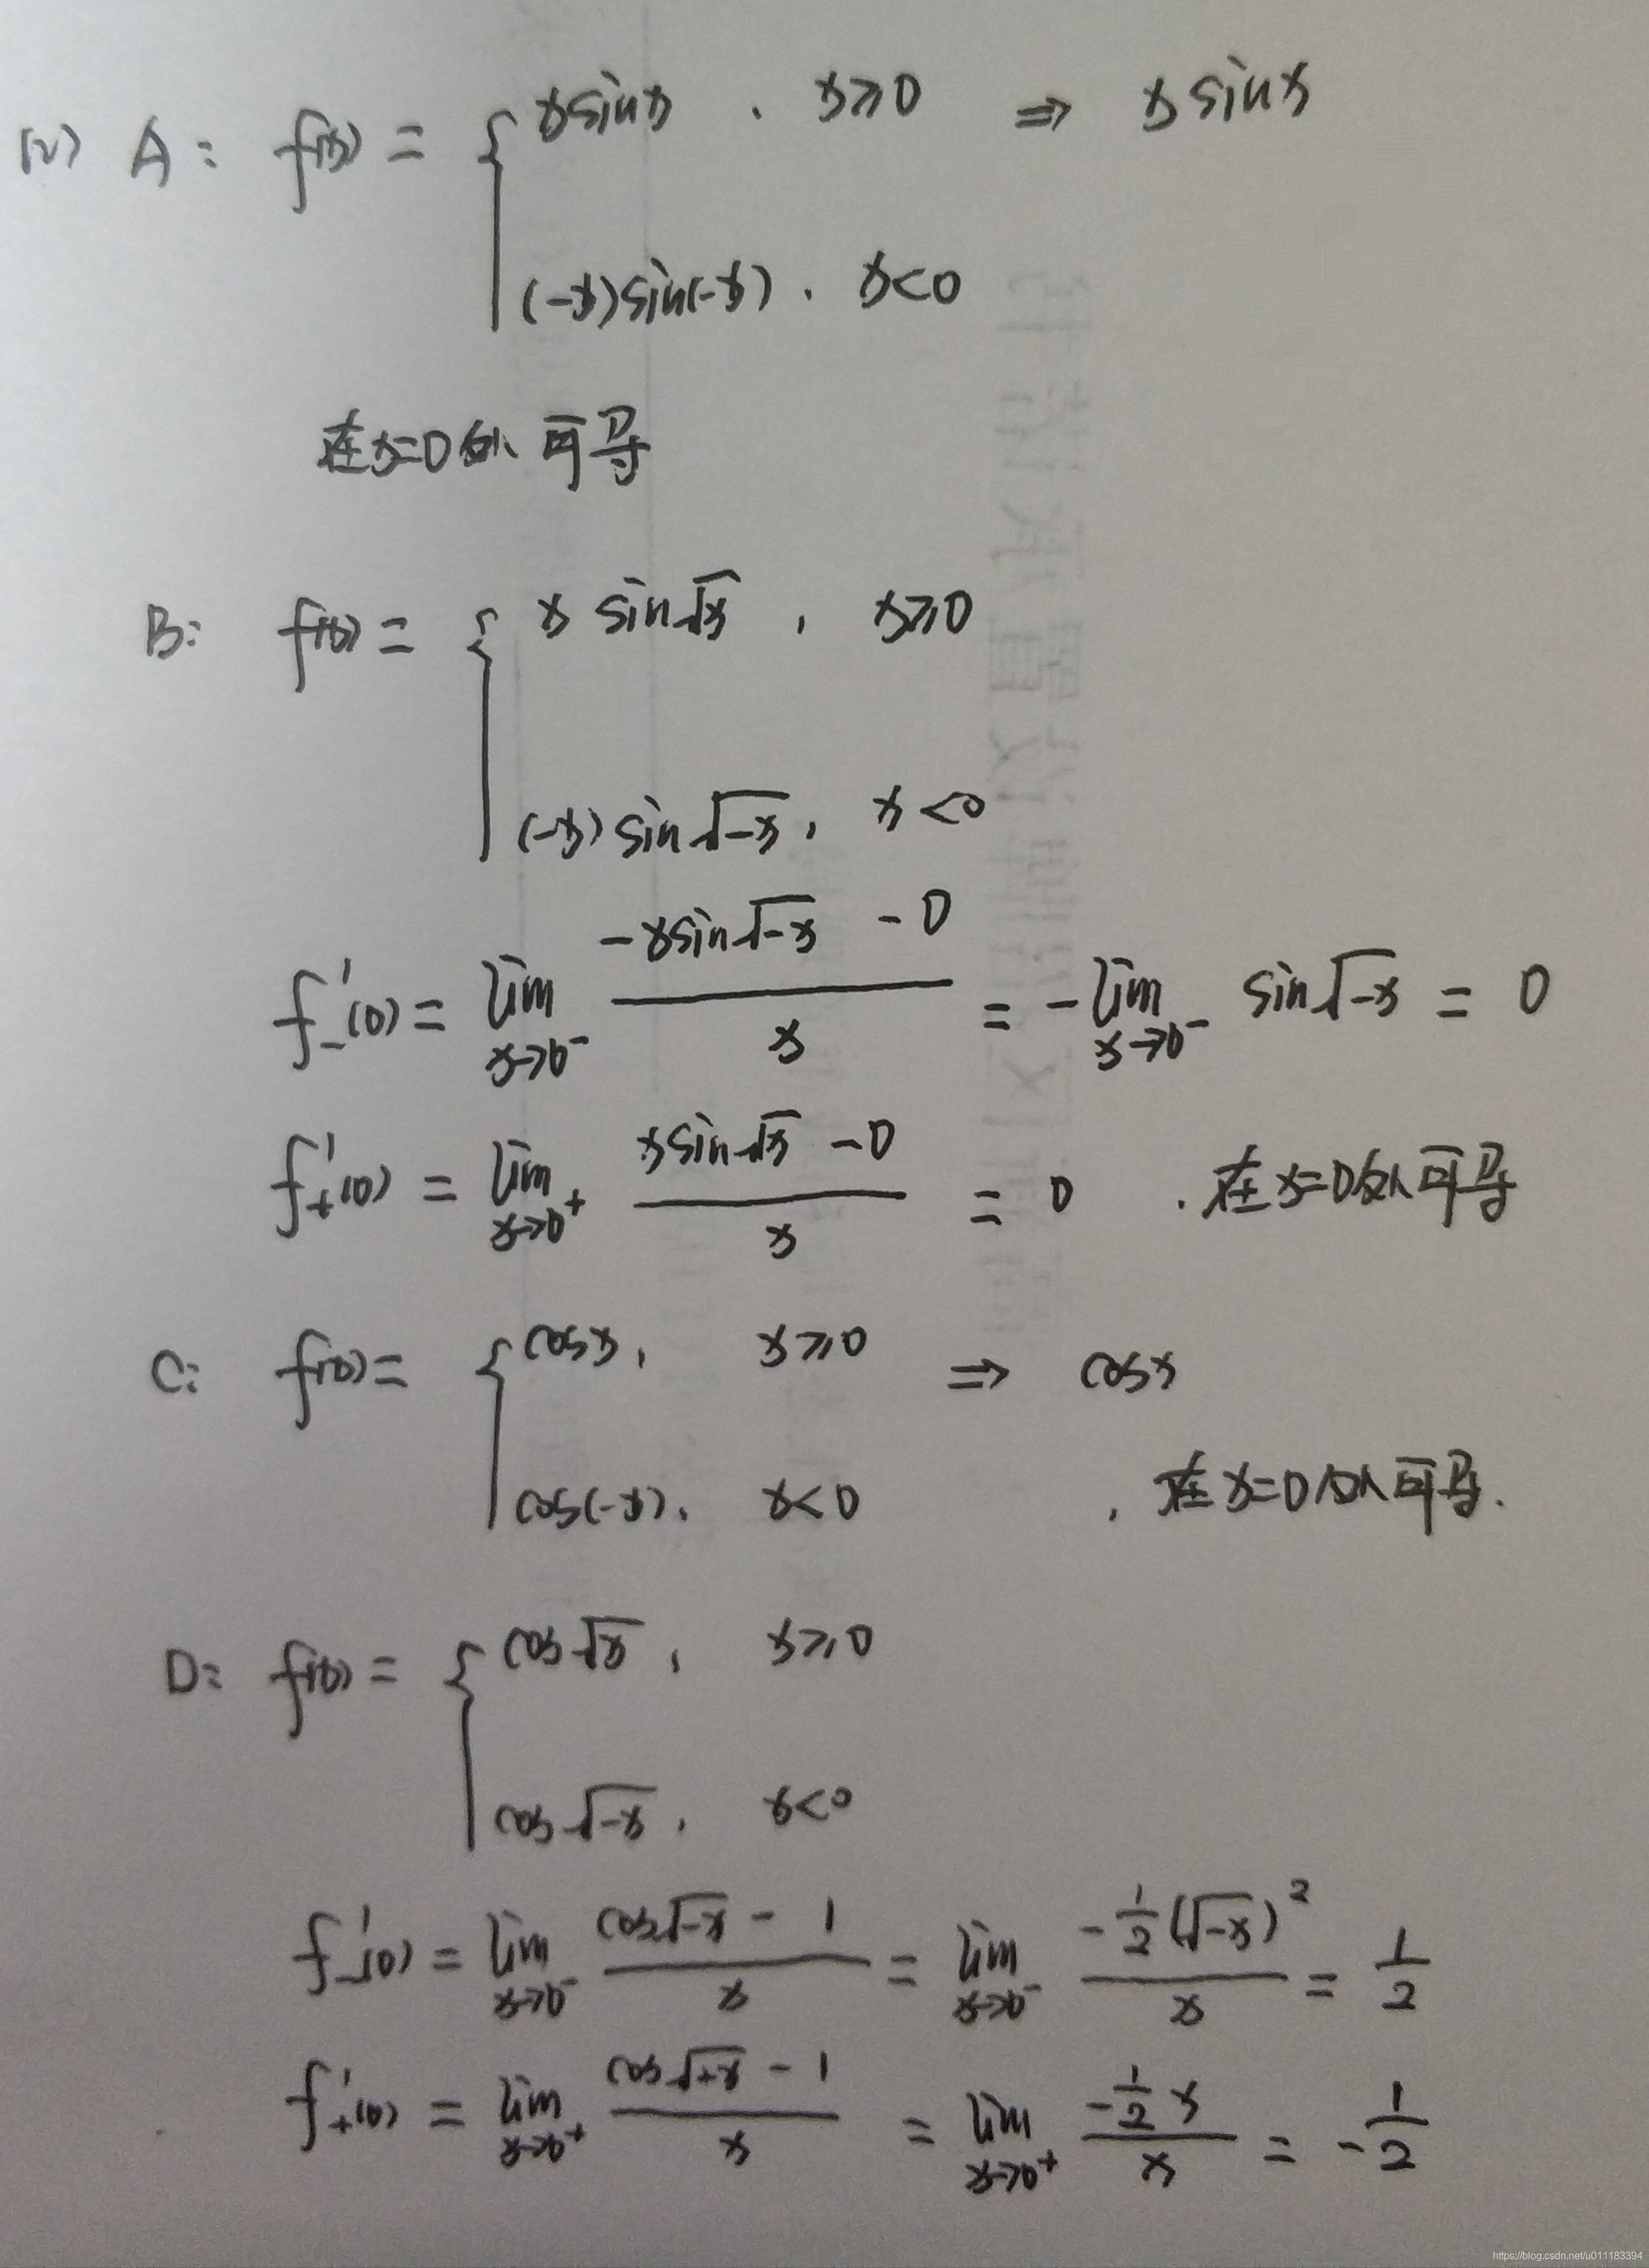 (2) A: f(x) = { x sin x , x≥0 ⇒ x sin x
(-x) sin(-x) , x<0
在x=0处可导
B: f(x) = { x sin√x , x≥0
(-x) sin√-x , x<0
f'₋(0) = lim x→0⁻ (-x sin√-x - 0)/x = -lim x→0⁻ sin√-x = 0
f'₊(0) = lim x→0⁺ (x sin√x - 0)/x = 0 , 在x=0处可导
C: f(x) = { cos x , x≥0 ⇒ cos x
cos(-x) , x<0 , 在x=0处可导.
D: f(x) = { cos√x , x≥0
cos√-x , x<0
f'₋(0) = lim x→0⁻ (cos√-x - 1)/x = lim x→0⁻ (-1/2 (√-x)²)/x = 1/2
f'₊(0) = lim x→0⁺ (cos√+x - 1)/x = lim x→0⁺ (-1/2 x)/x = -1/2
https://blog.csdn.net/u011183394